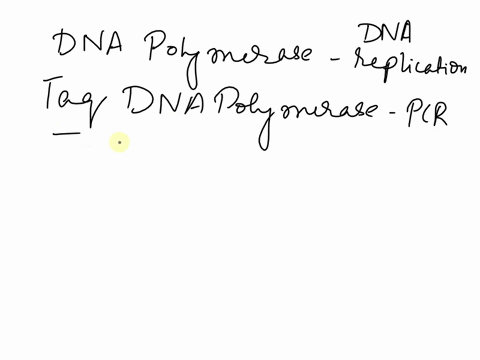 DNA Polymerase - DNA replication
Taq DNA Polymerase - PCR